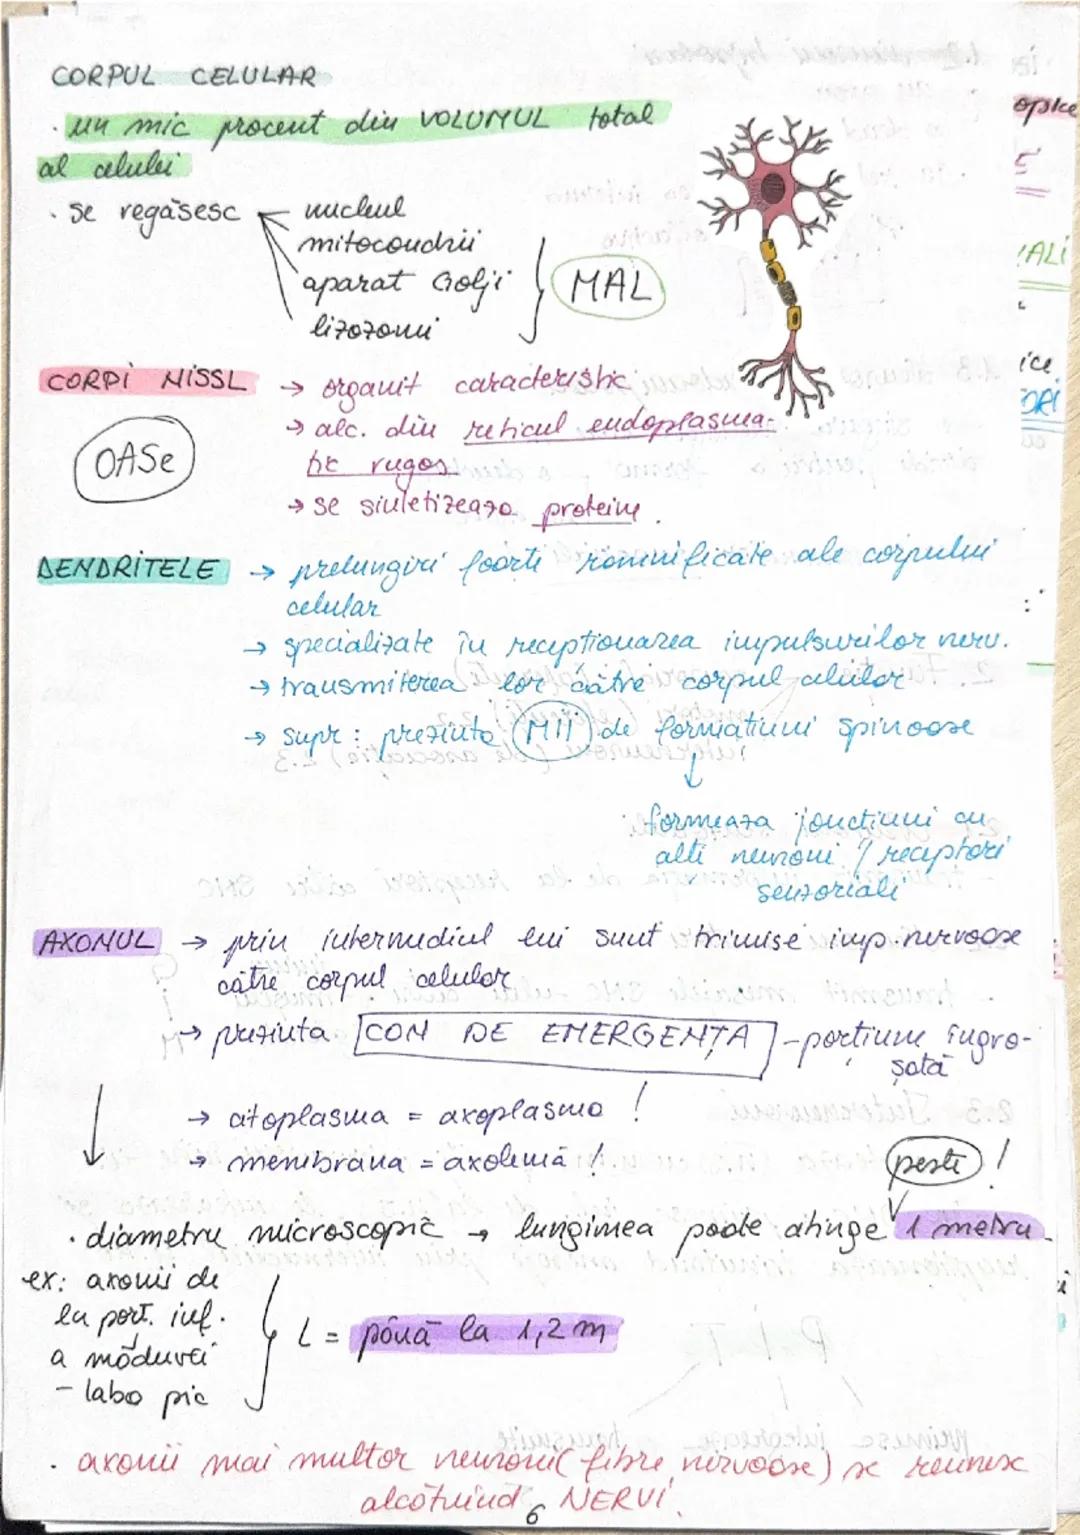 CORPUL CELULAR
· un mic procent din VOLUMUL total
al celulei
· se regăsesc nucleul
mitocondrii
aparat Golji
lizozomi
MAL
CORPI NISSL → organit caracteristic
→ alc. din reticul endoplasma-
tic rugos
OASe
→ se sintetizeaza proteine.
DENDRITELE → prelungiri foarte ramnificate ale corpului
celular
→ specializate în receptionarea impulsurilor nerv.
→ transmiterea lor către corpul celular
→ supr: prezinta MII de formatiuni spinoase
↓
formeaza jonctiuni cu
alti neuroni / receptori
senzoriali
AXONUL → prin intermediul lui sunt trimise imp. nervoase
către corpul celular
→ prezinta CON DE EMERGENȚA - portiune îngro-
șată
→ citoplasma = axoplasma !
→ membrana = axolemă !
peste !
· diametru microscopic → lungimea poate atinge 1 metru
ex: axonii de
la port. inf.
a măduvei
- laba pic
L = până la 1,2 m
· axonii mai multor neuroni (fibre nervoase) se reunesc
alcătuind NERVI.
6
opice
ALI
ice
ORI